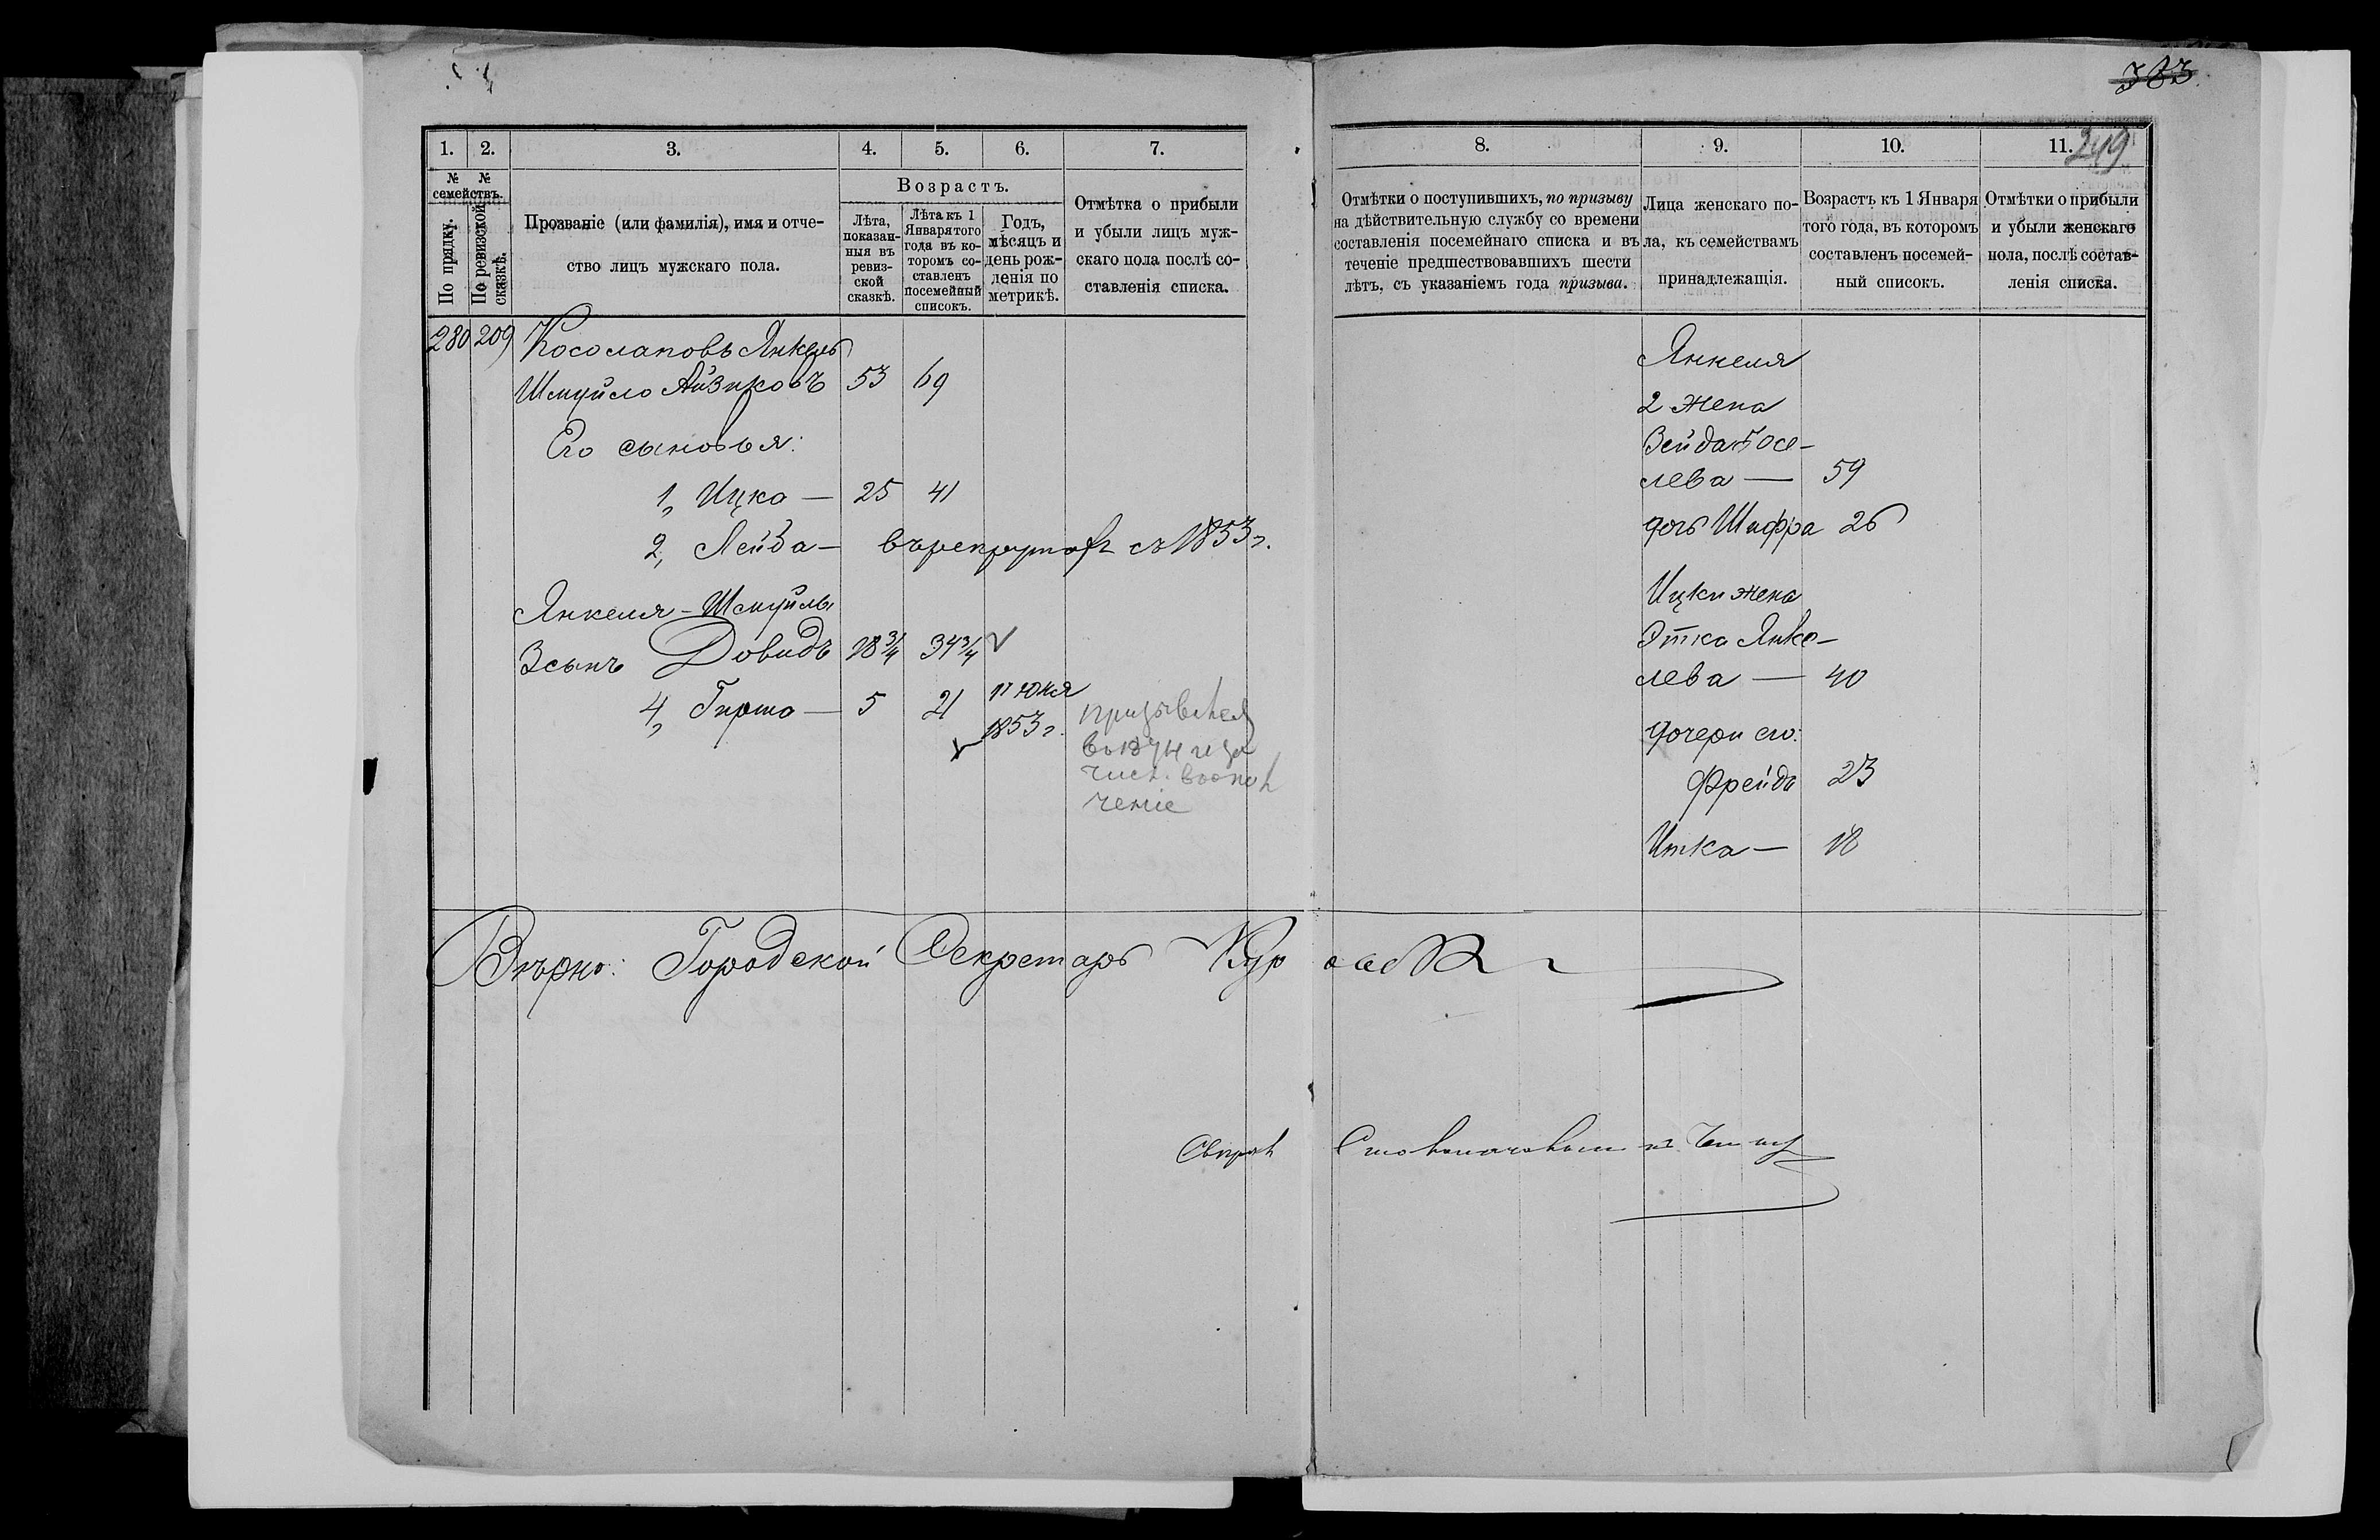 383
249
1. 2. 3. 4. 5. 6. 7.
№ № семействъ.
По прядку.
По ревизской сказкѣ.
Прозваніе (или фамилія), имя и отче-
ство лицъ мужскаго пола.
Возрастъ.
Лѣта,
показан-
ныя въ
ревиз-
ской
сказкѣ.
Лѣта къ 1
Января того
года въ ко-
торомъ со-
ставленъ
посемейный
списокъ.
Годъ,
мѣсяцъ и
день рож-
денія по
метрикѣ.
Отмѣтка о прибыли
и убыли лицъ муж-
скаго пола послѣ со-
ставленія списка.
280 209 Косолаповъ Янкель
Шмуйло Айзиковъ 53 69
Его сыновья:
1, Ицка — 25 41
2, Лейба — въ рекрутахъ съ 1853 г.
Янкеля-Шмуйлы
3 сынъ Довидъ 18 3/4 34 3/4
4, Гирша — 5 21 17 Юня
1853 г.
призывался
въ 1874 г за
числ. въ опол
ченіе
8. 9. 10. 11.
Отмѣтки о поступившихъ, по призыву
на дѣйствительную службу со времени
составленія посемейнаго списка и въ
теченіе предшествовавшихъ шести
лѣтъ, съ указаніемъ года призыва.
Лица женскаго по-
ла, къ семействамъ
принадлежащія.
Возрастъ къ 1 Января
того года, въ которомъ
составленъ посемей-
ный списокъ.
Отмѣтки о прибыли
и убыли женскаго
пола, послѣ состав-
ленія списка.
Янкеля
2 жена
Зейда Іосе-
лева — 59
дочь Шифра 26
Ицки жена
Этка Янке-
лева — 40
дочери его:
Фрейда 23
Итка — 18
Вѣрно: Городской Секретарь